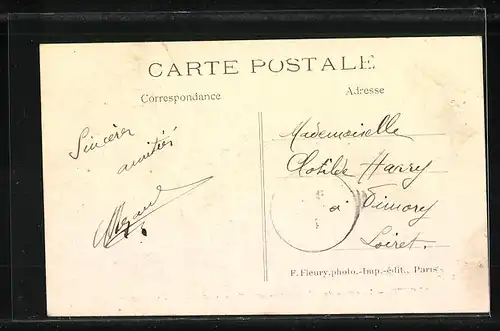 CARTE POSTALE
Correspondance
Adresse
Sincères
amitiés
Mademoiselle
Clotilde Harry
à Timory
Loiret.
F. Fleury, photo.-Imp.-édit., Paris